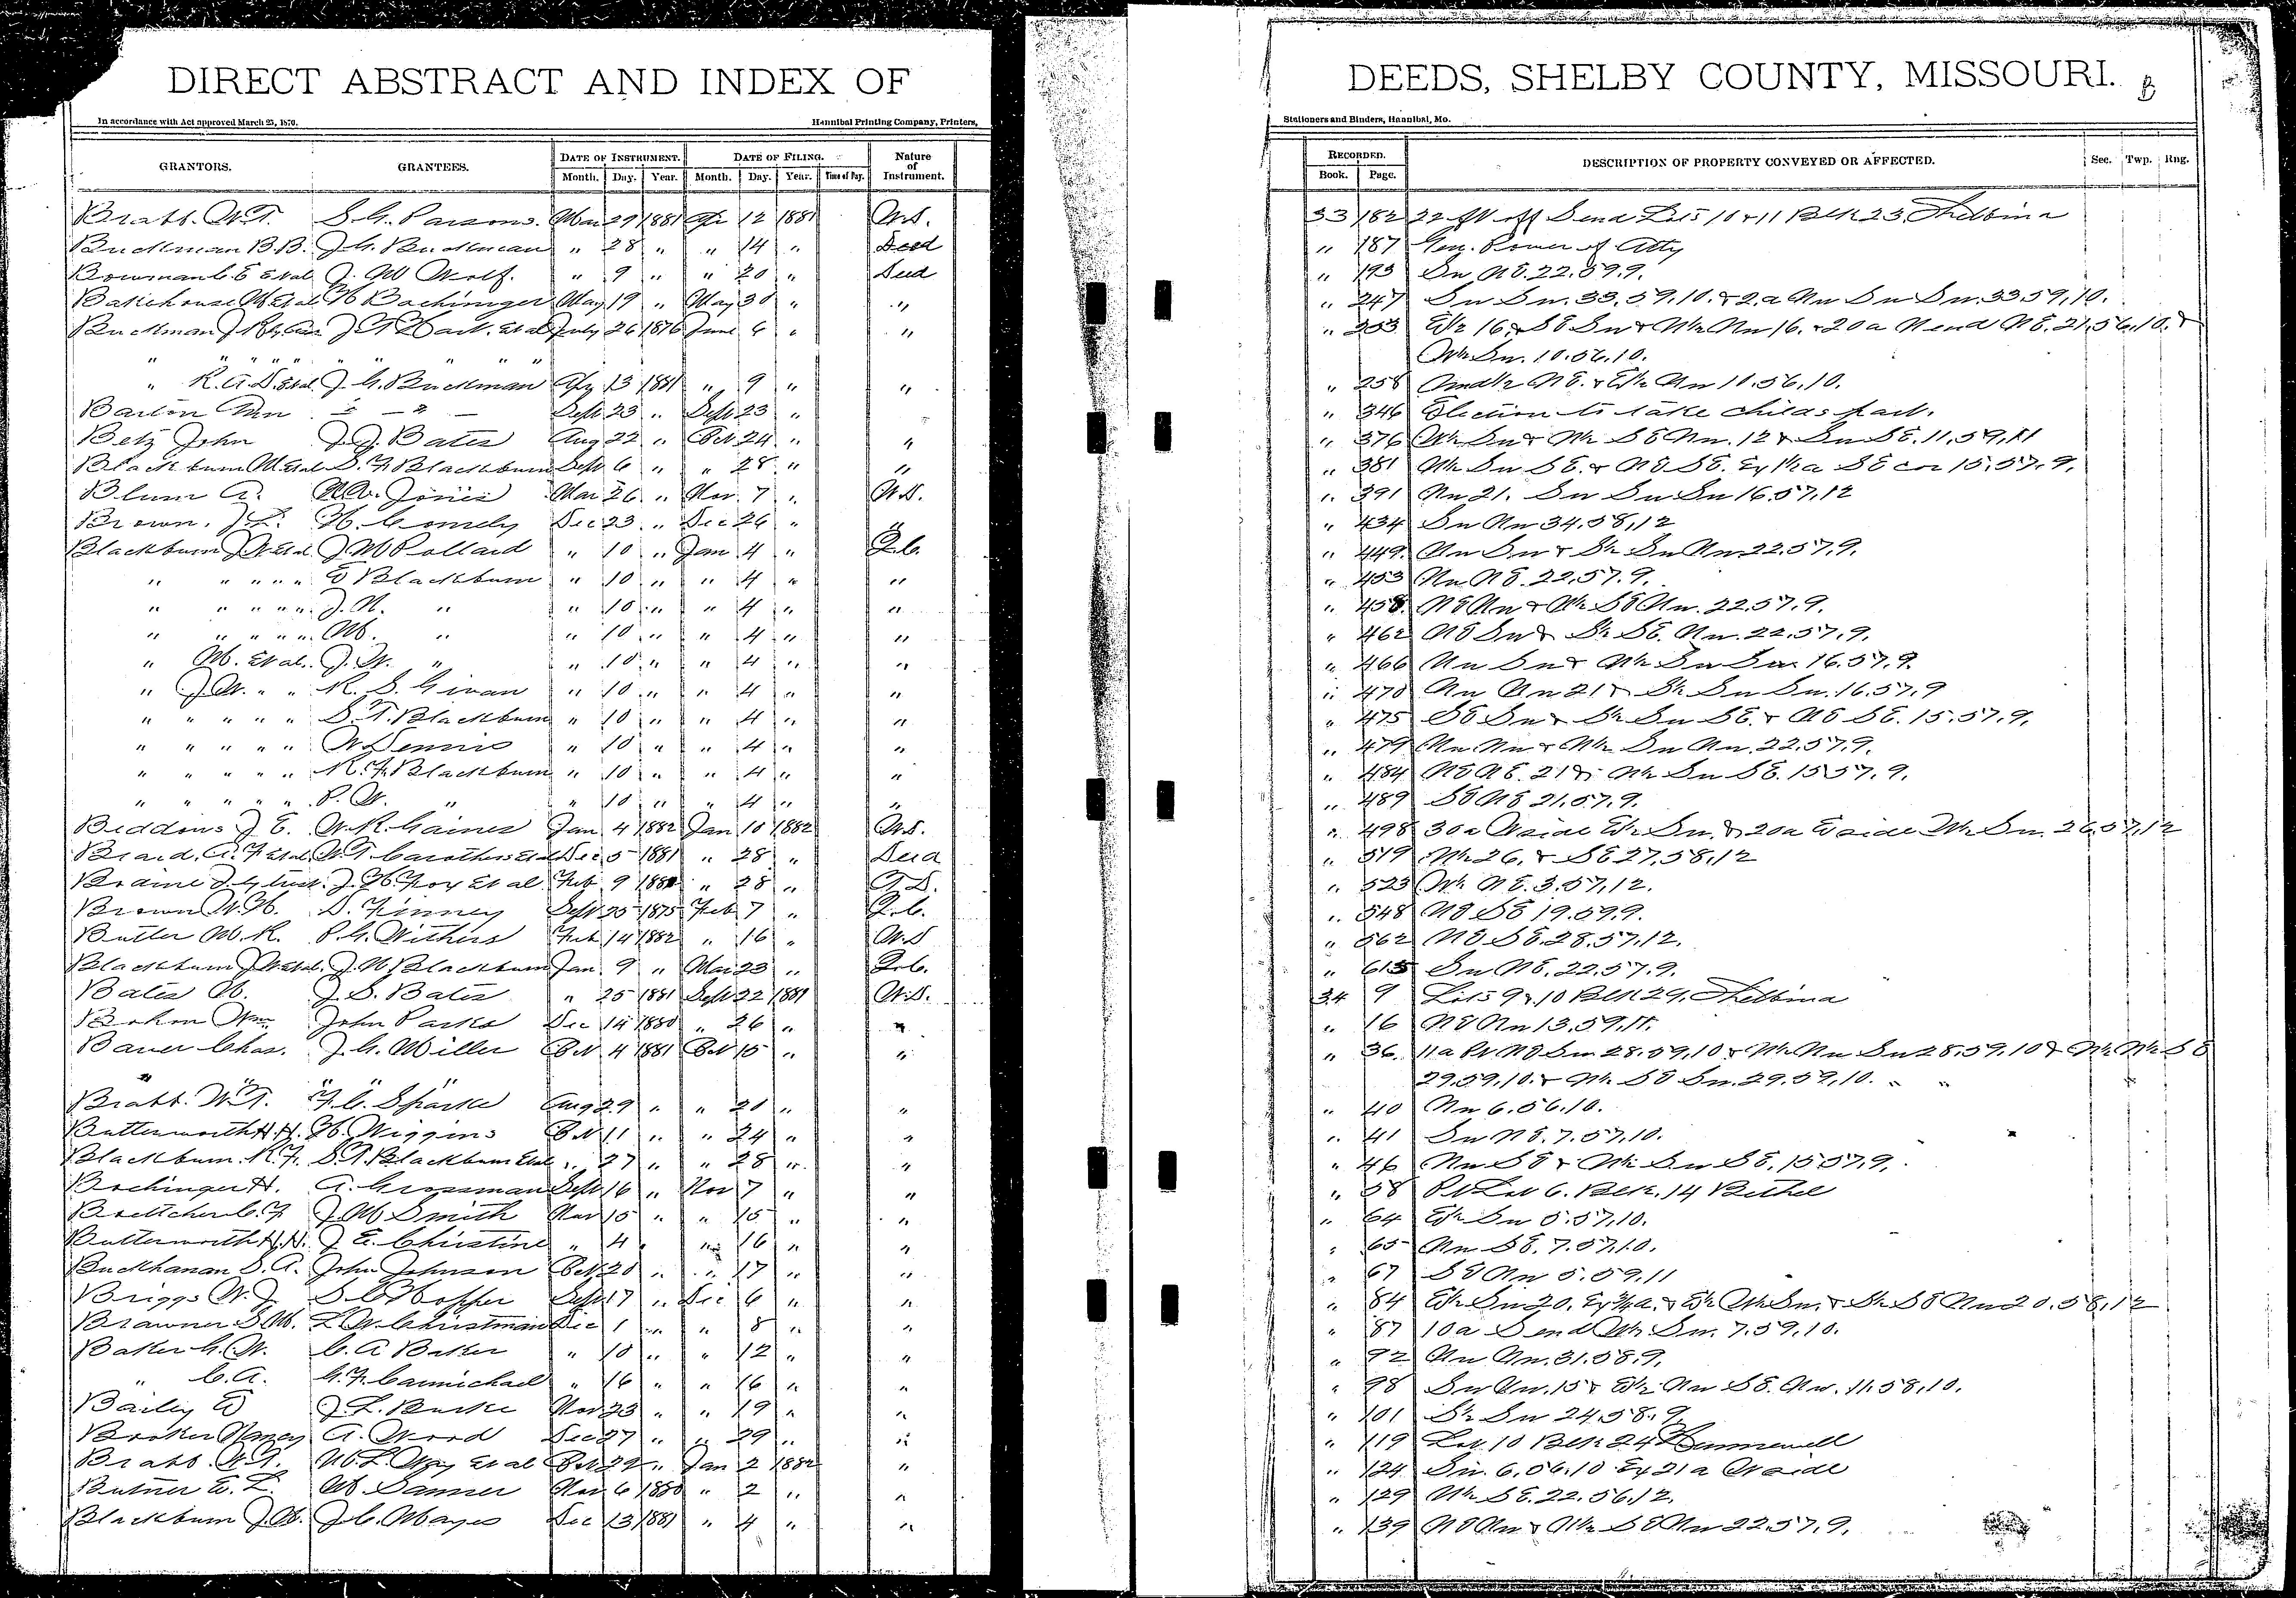 DIRECT ABSTRACT AND INDEX OF
DEEDS, SHELBY COUNTY, MISSOURI. B
In accordance with Act approved March 25, 1870. Hannibal Printing Company, Printers,
Stationers and Binders, Hannibal, Mo.
GRANTORS. GRANTEES. DATE OF INSTRUMENT. DATE OF FILING. Nature of Instrument. RECORDED. DESCRIPTION OF PROPERTY CONVEYED OR AFFECTED. Sec. Twp. Rng.
Month. Day. Year. Month. Day. Year. Time of Day. Book. Page.
Brabb. W.T. S.G. Parsons. Mar 29 1881 Apr 12 1881 W.D. 33 182 22 ft W off Send Lots 10 & 11 Blk 23, Shelbina
Buckman B.B. J.G. Buckman " 28 " " 14 " Deed " 187 Gen. Power of Atty
Bowman C.E Et al J. W Wolf. " 9 " " 20 " Deed " 193 Sw NE. 22.59.9.
H Bachinger May 19 " May 30 " " " 247 Sw Sw. 33.59.10. & 2.a Nw Sw Sw. 33 59,10.
Buckman Et al July 26 1876 June 6 " " " 253 E½ 16 & SE Sw & W½ Nw 16. & 20a Nend NE. 21.56.10. &
" " " " " " " " " " W½ Sw. 10.56.10.
" R.A.D. Et al. J.G. Buckman Apr 13 1881 " 9 " " " 258 NE. & E½ Nw 10.56.10.
Barton Ann Sept 23 " Sept 23 " " 346 Election to take childs part.
Betz John J.J. Bates Aug 22 " Oct 24 " " " 376 W½ Sw & W½ SE Nw. 12 & Sw SE. 11,59,11
Blackburn M. Et al S.F. Blackburn Sept 6 " " 28 " " " 381 W½ Sw SE. & NE SE. Ex 1½ a SE cor 15.57.9.
Blum A. Jones Mar 26 " Nov. 7 " W.D. " 391 Nw 21. Sw Sw Sw 16.57.12
Brown. J.L. H. Comely Dec 23 " Dec 26 " " " 434 Sw Nw 34.58.12
Blackburn J.W Et al J.W Pollard " 10 " Jan 4 " Q.C. " 449. Nw Sw & S½ Sw Nw 22.57.9.
" " " " " E Blackburn " 10 " " 4 " " " 453 Nw NE. 22.57.9.
" " " " " J.N. " " 10 " " 4 " " " 458. NE Nw & N½ SE Nw. 22.57.9.
" " " " " M. " " 10 " " 4 " " " 462 NE Sw & S½ SE. Nw. 22.57.9.
" M. Et al. J.W. " " 10 " " 4 " " " 466 Nw Sw & N½ Sw Sw 16.57.9.
" J.W. " " R.S. Givan " 10 " " 4 " " " 470 Nw Nw 21 & S½ Sw Sw. 16.57.9
" " " " " S.T. Blackburn " 10 " " 4 " " " 475 SE Sw & S½ Sw SE. & NE SE. 15.57.9.
" " " " " W Dennis " 10 " " 4 " " " 479 Nw Nw & N½ Sw Nw. 22.57.9.
" " " " " R.F. Blackburn " 10 " " 4 " " " 484 NE NE. 21 & N½ Sw SE. 15 57.9.
" " " " " P.W. " " 10 " " 4 " " " 489 SE NE 21.57.9.
Beddows J E. W.R. Gaines Jan 4 1882 Jan 10 1882 W.D. " 498 30a Wside E½ Sw. & 20a Eside W½ Sw. 26.57.12
Beard, A.F Et al W.T. Carothers Et al Dec 5 1881 " 28 " Deed " 519 W½ 26. & SE 27,58,12
J.H. Fox Et al Feb 9 " 28 " T.D. " 523 W½ NE. 3.57,12.
Brown W.H. D. Finney Sept 25 1875 Feb 7 " Q.C. " 548 NE SE 19.59.9.
Butler M.R. P.G. Withers Feb 14 1882 " 16 " W.D " 562 NE SE. 28.57,12.
Blackburn J.W Et al. J.N Blackburn Jan 9 " Mar 23 " Q.C. " 615 Sw NE. 22.57.9.
Bates J.S. Bates " 25 1881 Sept 22 1881 W.D. 34 9 Lots 9 & 10 Blk 29, Shelbina
Bohon Wm John Parks Dec 14 1880 " 26 " " " 16 NE Nw 13.59,11.
Bauer Chas. J.G. Miller Oct 4 1881 Oct 15 " " " 36. 11a Pt NE Sw 28.59,10 & W½ Nw Sw 28.59.10 & N½ N½ SE
" " " " 29.59,10. & N½ SE Sw. 29.59,10. " "
Brabb. W.T. F.C. Sparks Aug 29 " " 20 " " " 40 Nw 6.56.10.
Butterworth H.H. H. Wiggins Oct 11 " " 24 " " " 41 Sw NE. 7.57,10.
Blackburn. R.F. S.T. Blackburn Et al " 27 " " 28 " " " 46 Nw SE & N½ Sw SE. 15 57.9.
Bochinger H. A. Grossman Sept 16 " Nov 7 " " " 58 Pt Lot 6. Blk. 14 Bethel
Boettcher C.F. J.M Smith Nov 15 " " 15 " " " 64 E½ Sw 5.57,10.
Butterworth H.H. J E. Christine " 4 " " 16 " " " 65 Nw SE. 7.57,10.
Buckhanan D.A. John Johnson Oct 20 " " 17 " " " 67 SE Nw 5.59,11
Briggs W.J. S C Hopper Sept 17 " Dec 6 " " " 84 E½ Sw 20. Ex ¾ a. & E½ W½ Sw. & S½ SE Nw 20.58,12
Brawner S.M. L.W. Christman Dec 1 " " 8 " " " 87 10a Send W½ Sw. 7.59,10.
Baker G.W. C.A Baker " 10 " " 12 " " " 92 Nw Nw. 31.58.9.
" C.A. G.F. Carmichael " 16 " " 16 " " " 98 Sw Nw. 15 & E½ Nw SE. Nw. 11.58,10.
Bailey E J.L. Burke Nov 23 " " 19 " " " 101 S½ Sw 24.58.9.
Booker Nancy A. Wood Dec 27 " " 29 " " " 119 Lot 10 Blk 24 Hunnewell
Brabb. W.T. M.L. Way Et al Oct 22 " Jan 2 1882 " " 124 Sw. 6.56.10 Ex 21a Wside
Butner E.L. W. Sanner Nov 6 1880 " 2 " " " 129 N½ SE. 22.56.12.
Blackburn J.M. J.C. Mayes Dec 13 1881 " 4 " " " 139 NE Nw & N½ SE Nw 22.57.9.